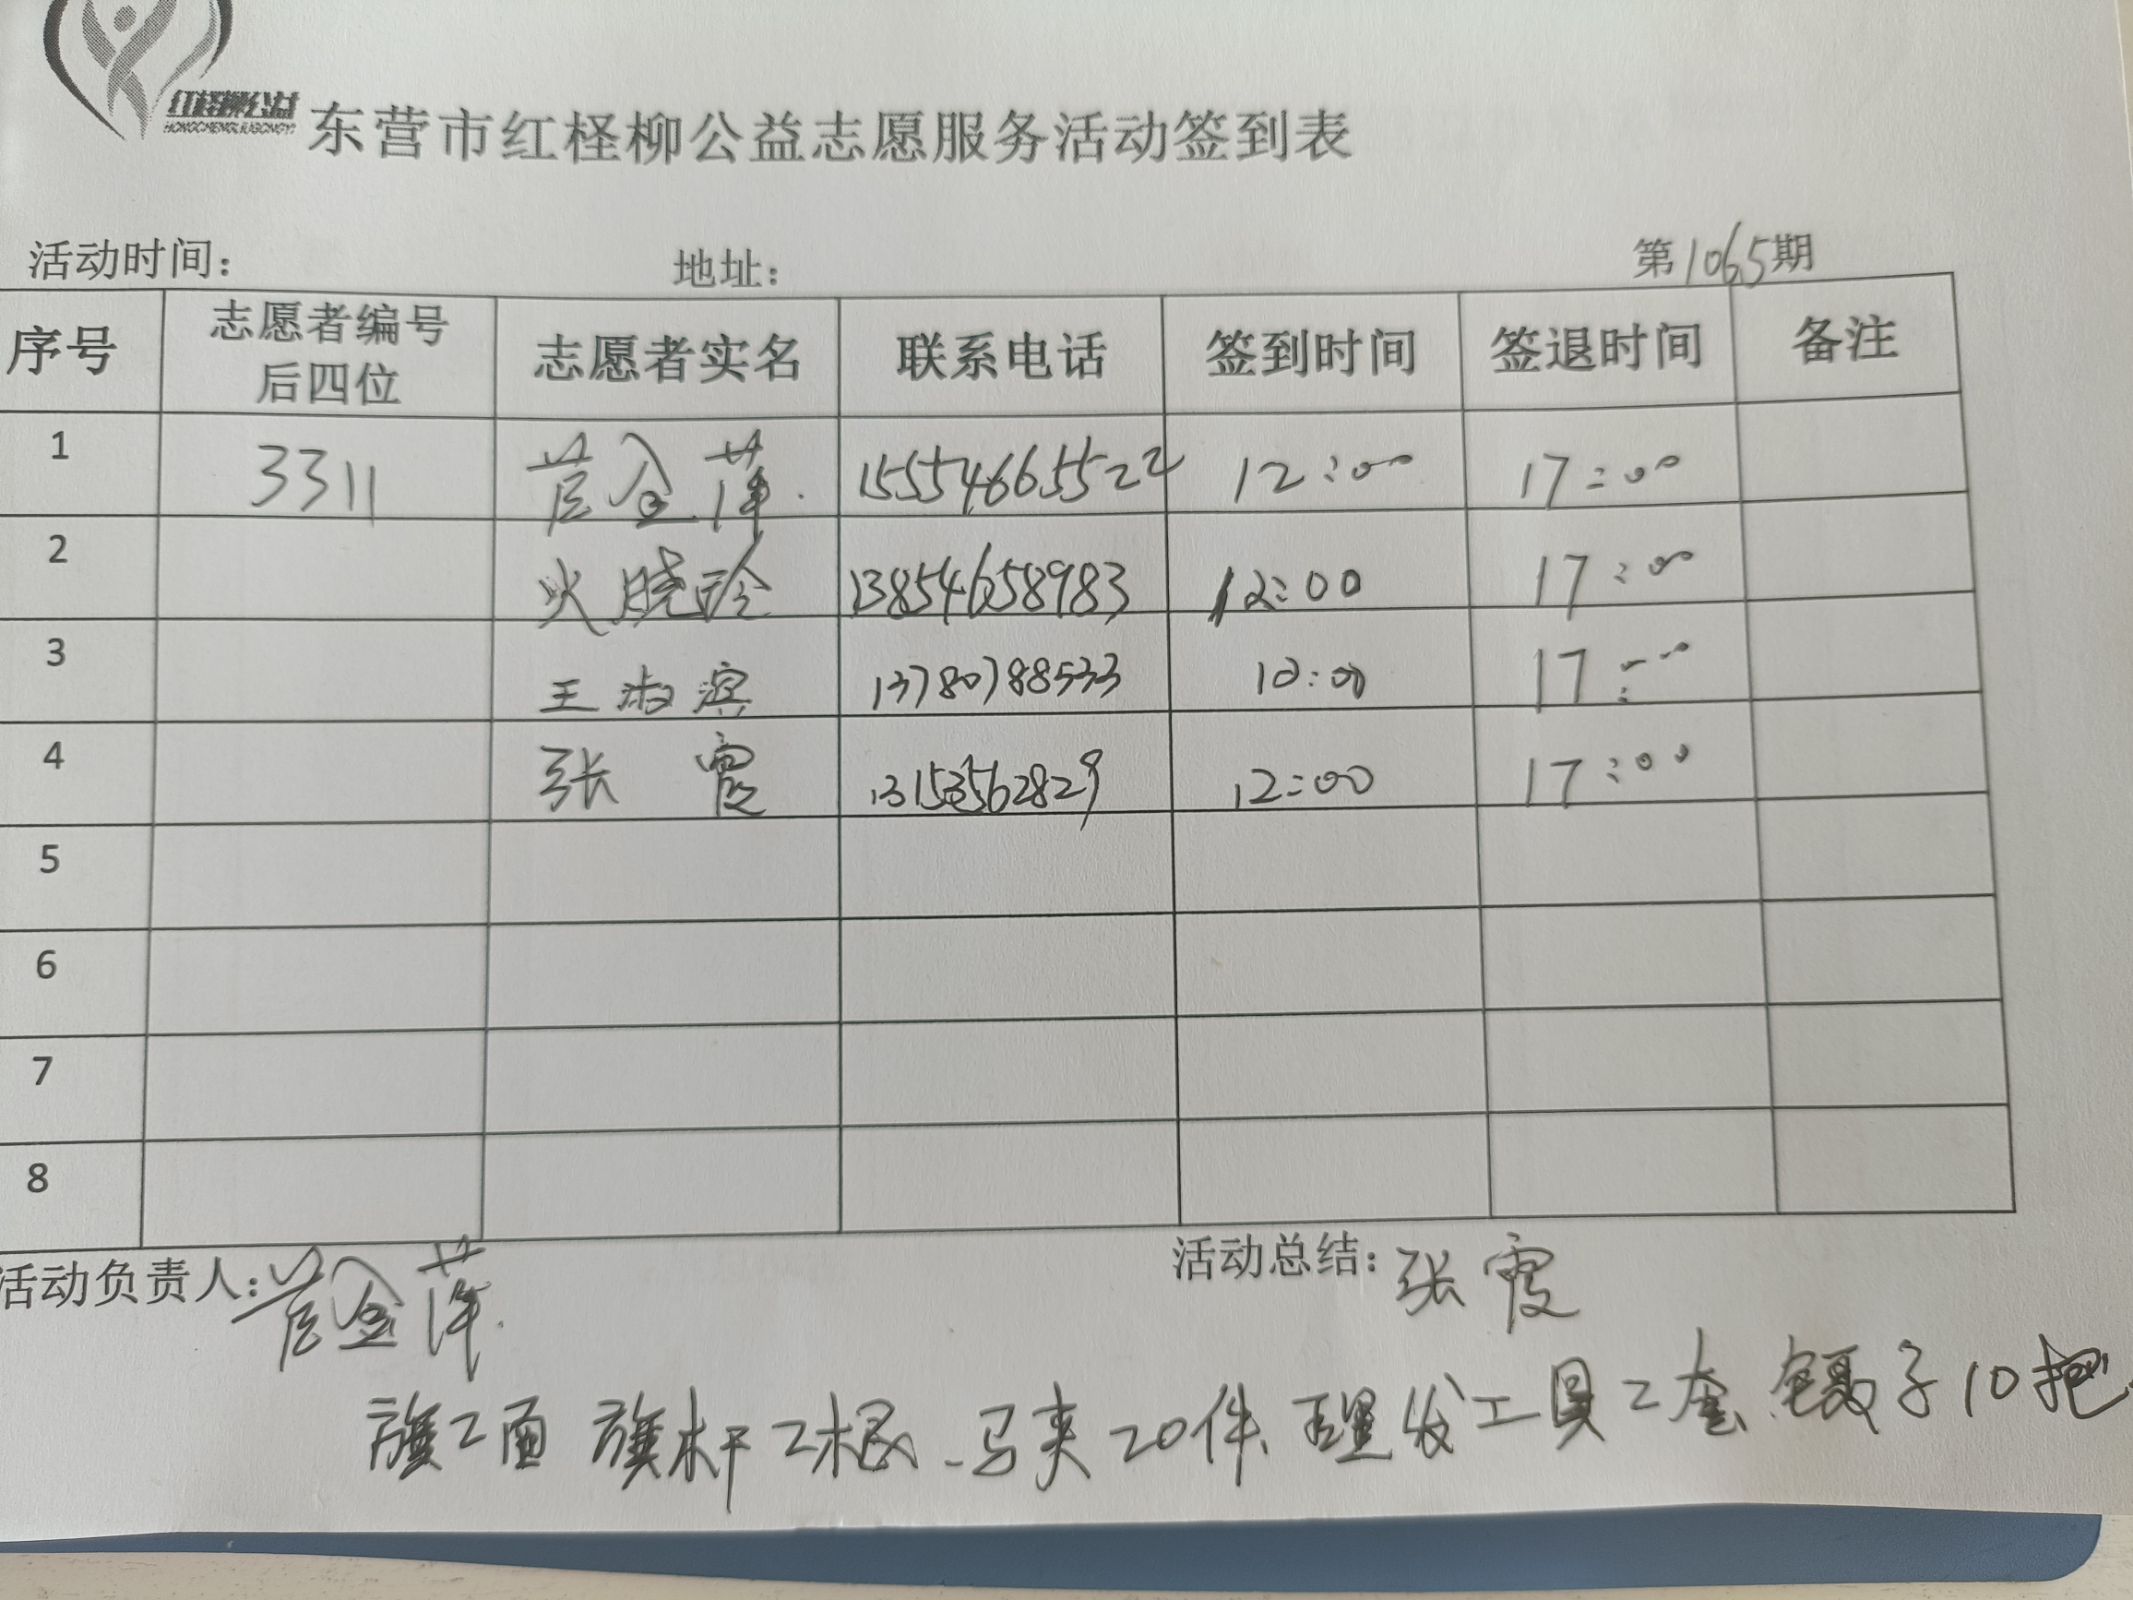 红柽柳公益
HONGCHENGLIUGONGYI
东营市红柽柳公益志愿服务活动签到表
活动时间： 地址： 第1065期
序号 志愿者编号后四位 志愿者实名 联系电话 签到时间 签退时间 备注
1 3311 15554665522 12:00 17:00
2 晓玲 13854658983 12:00 17:00
3 王淑滨 13780788533 12:00 17:00
4 张霞 13153562829 12:00 17:00
5
6
7
8
活动负责人： 活动总结：张霞
旗2面 旗杆2根、马夹20件、理发工具2套、镊子10把